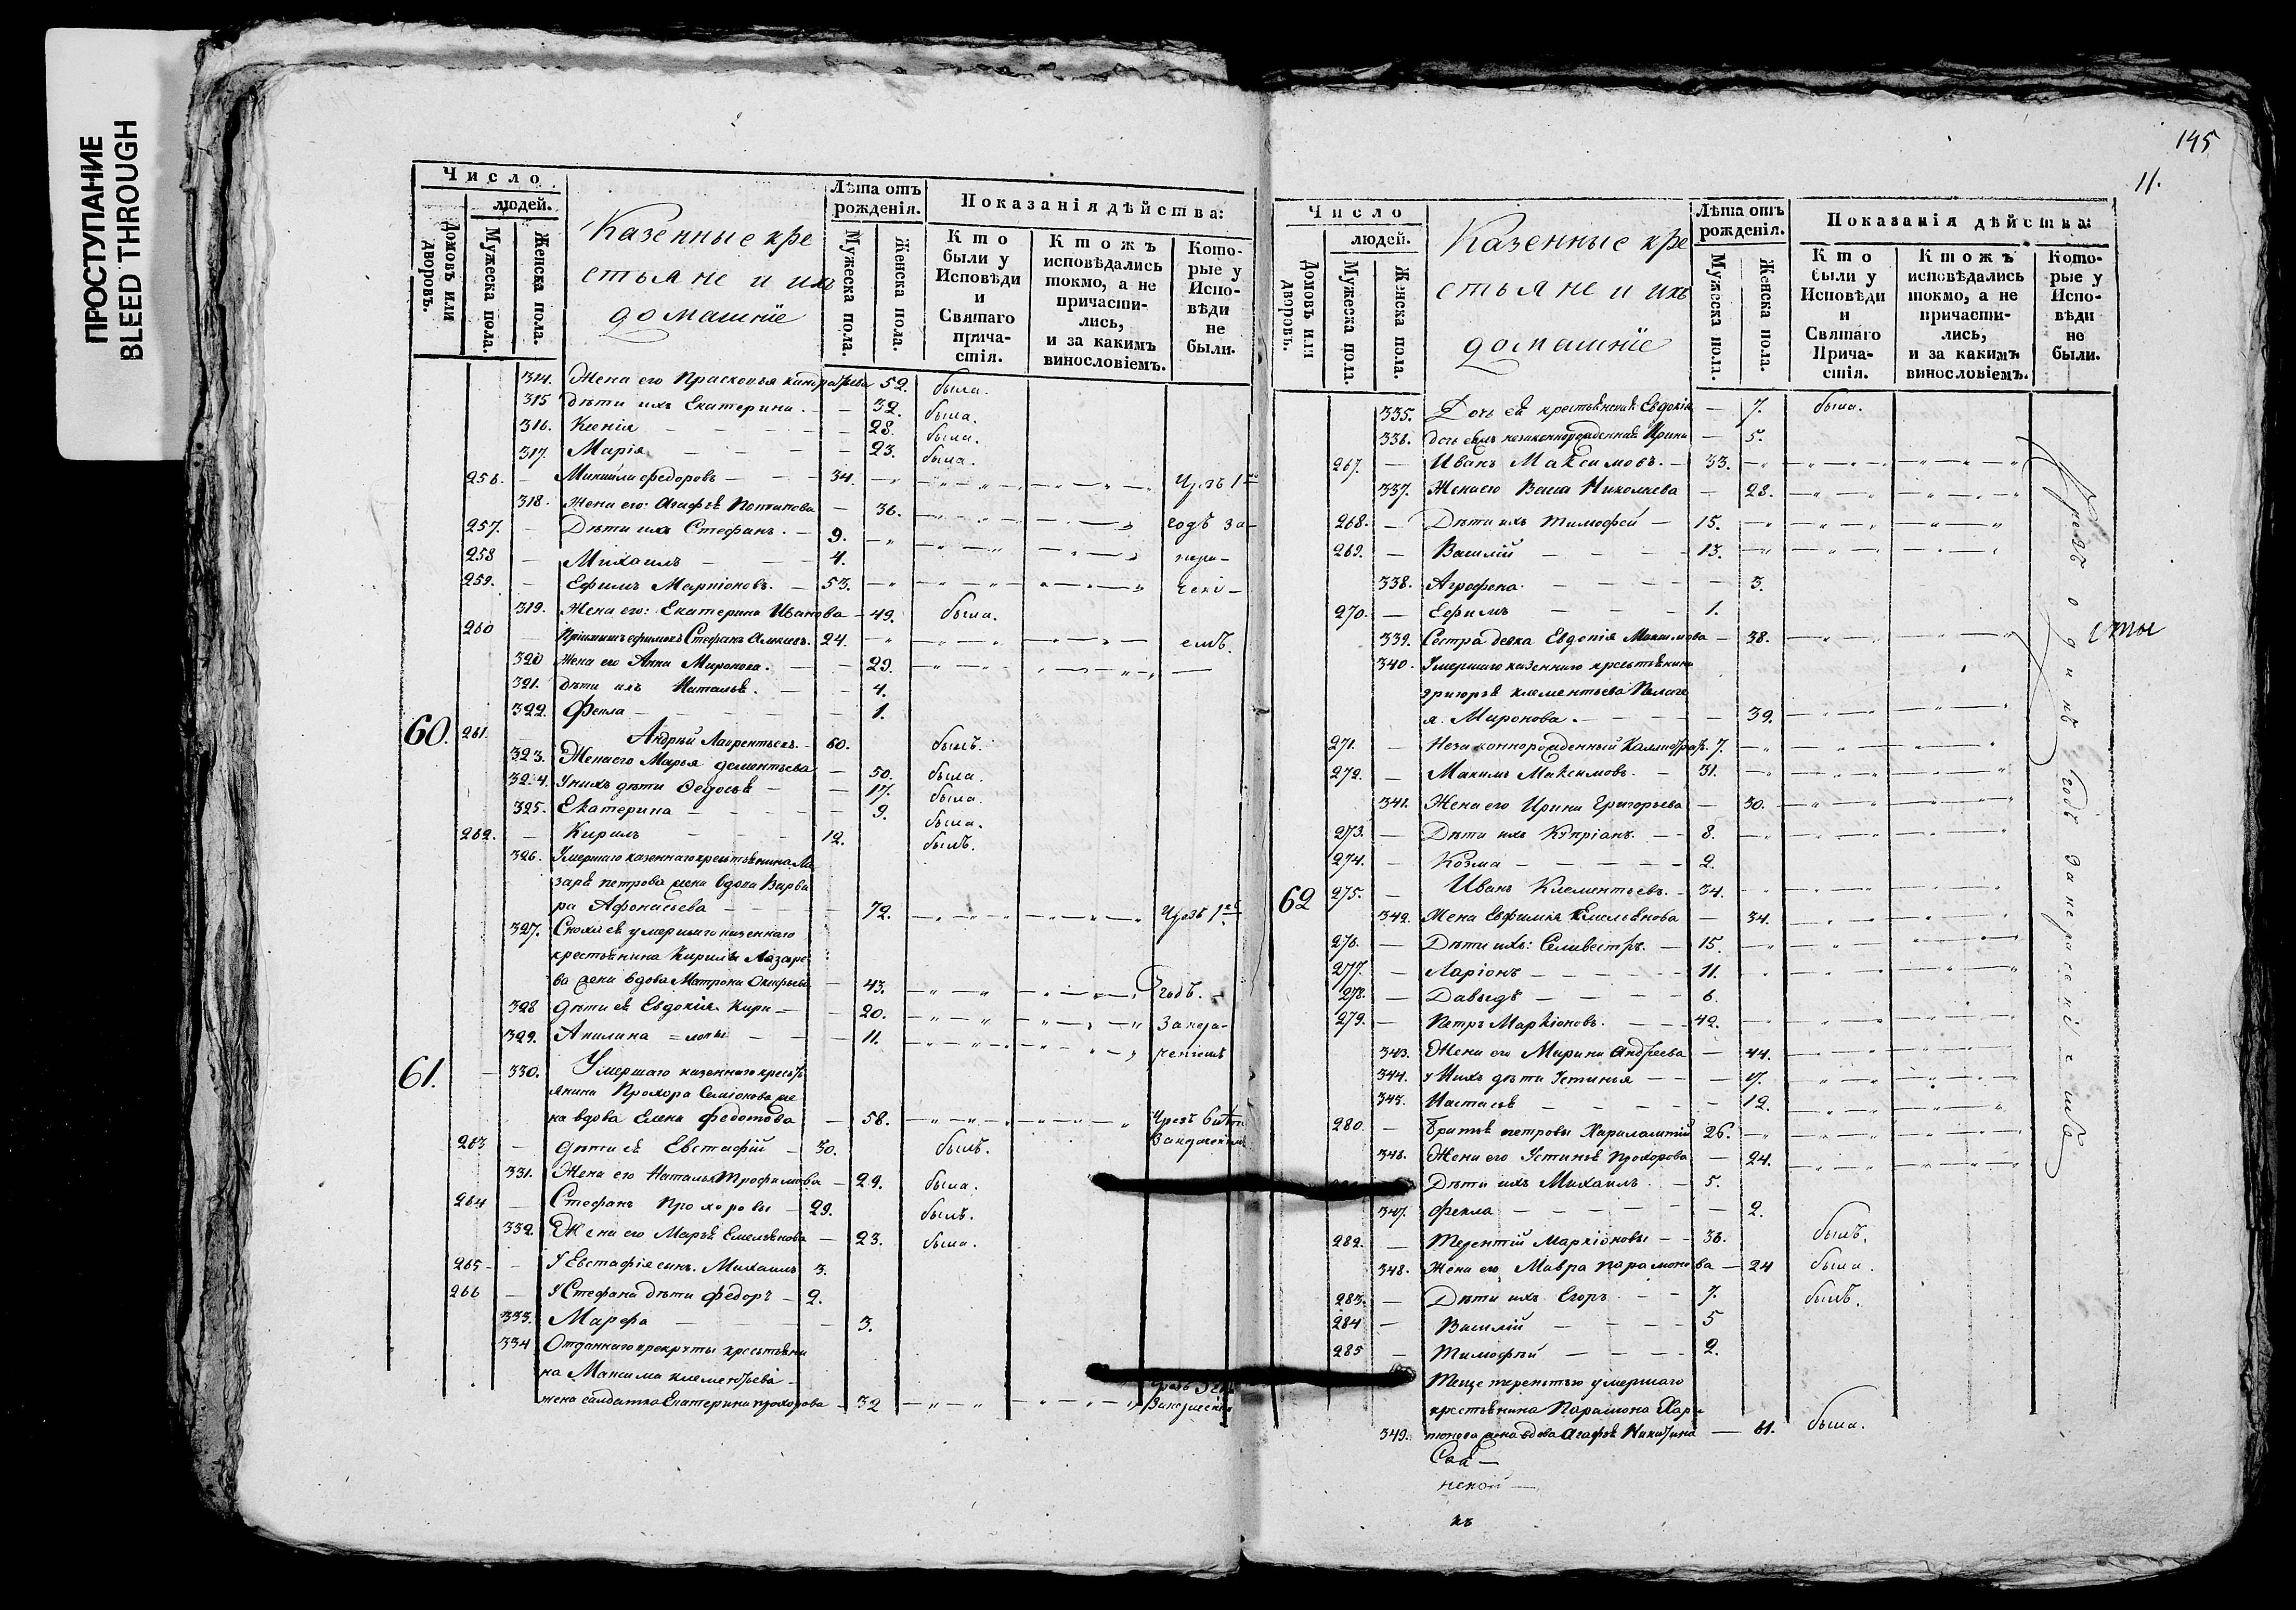 ПРОСТУПАНИЕ
BLEED THROUGH
145
11.
Число
людей.
Домовъ или дворовъ.
Мужеска пола.
Женска пола.
Казенные кре
стьяне и ихъ
домашніе
Лѣта отъ рожденія.
Мужеска пола.
Женска пола.
Показанія дѣйства:
Кто были у Исповѣди и Святаго прича-стія.
Ктожъ исповѣдались токмо, а не причасти-лись, и за какимъ винословіемъ.
Кото-рые у Испо-вѣди не были.
314. Жена его Прасковья Кандратьева 52. была.
315 дѣти ихъ Екатерина. — 32. была.
316. Ксенія — 28. была.
317. Марія — 23. была.
256. — Михайла Федоровъ — 34. Чрезъ 1
318. Жена его: Агафья Потапова — 36.
257. — Дѣти ихъ Стефанъ. — 9. годъ за-
258 — Михаилъ — 4.
259. — Ефимъ Маркіоновъ. — 53.
319. Жена его: Екатерина Иванова — 49. была.
260 — Стефанъ 24. емъ.
320 Жена его Анна Миронова. — 29.
321. дѣти ихъ Наталья. — 4.
322. Фекла — 1.
60. 261. Андрей Лаврентьевъ. — 60. былъ.
323. Жена его Марья Дементьева — 50. была.
324. У нихъ дѣти Федосья — 17. была.
325. Екатерина — 9. была.
262. — Кирилъ — 12. былъ.
326. Умершаго казеннаго крестьянина Ла
заря Петрова жена вдова Варва
ра Афонасьева — 72. Чрезъ 1
327. Сноха ея умершаго казеннаго
крестьянина Кирилы Лазаре
ва жена вдова Матрона — 43. годъ.
328 дѣти ея Евдокія Кири — 20.
329. Акилина = ловы — 11.
61. — 330. Умершаго казеннаго кресть
янина Прохора Семіонова же
на вдова Елена Федотова — 58. Чрезъ
263 — дѣти ея Евстафій — 30. былъ.
331. Жена его Наталья Трофимова — 29. была.
264 — Стефанъ Прохоровы — 29. былъ.
332. Жена его Марья Емельянова — 23. была.
265 — У Евстафія сынъ. Михаилъ 3.
266 — У Стефана дѣти Федоръ — 2.
333. Марфа — 3.
334 Отданнаго в рекруты крестьяни
на Максима Клементьева —
жена салдатка Екатерина Прохорова — 32
Число
людей.
Домовъ или дворовъ.
Мужеска пола.
Женска пола.
Казенные кре
стьяне и ихъ
домашніе
Лѣта отъ рожденія.
Мужеска пола.
Женска пола.
Показанія дѣйства:
Кто были у Исповѣди и Святаго Прича-стія.
Ктожъ исповѣдались токмо, а не причасти-лись, и за какимъ винословіемъ.
Кото-рые у Испо-вѣди не были.
335. Дочь ея Евдокія — 7. была.
336. дочь незаконнорожденная Ирина — 5.
267. — Иванъ Максимовъ. — 33.
337. Жена его Васса Николаева — 28.
268. — Дѣти ихъ Тимофей — 15.
269. — Василій — 13.
338. Агрофена. — 3.
270. — Ефимъ — 1.
339. Сестра девка Евдокія Максимова — 38.
340. Умершаго казеннаго крестьянина
Григорья Клементьева Пелаге
я Миронова. — 39.
271. — Незаконнорожденный 7.
272. — Максимъ Максимовъ. — 31.
341. Жена его Ирина Григорьева — 30.
273. — Дѣти ихъ Кѵпріанъ. — 8.
274. — Козма — 2.
62 275. — Иванъ Клементьевъ. — 34.
342. Жена Евфимія Емельянова — 34.
276. — Дѣти ихъ: Селивестръ. — 15.
277. — Ларіонъ — 11.
278. — Давыдъ — 6.
279. — Петръ Маркіоновъ. — 42.
343. Жена его Марина Андреева — 44.
344. У нихъ дѣти Устинія — 17.
345. Настасья — 12.
280. — Братья Петровы Харлампій 26.
346. Жена его Устинья Прохорова — 24.
Дѣти ихъ Михаилъ — 5.
347. Фекла — 2.
282. — Терентій Маркіоновъ — 36. былъ.
348. Жена его Мавра Парамонова — 24 была.
283. — Дѣти ихъ Егоръ — 7. былъ.
284 — Василій — 5
285 — Тимофѣй — 2.
Теще терентью умершаго
крестьянина Парамона Хари
тонова жена вдова Агафья Никитина — 61. была.
349.
Чрезъ одинъ годъ за нерасеніемъ